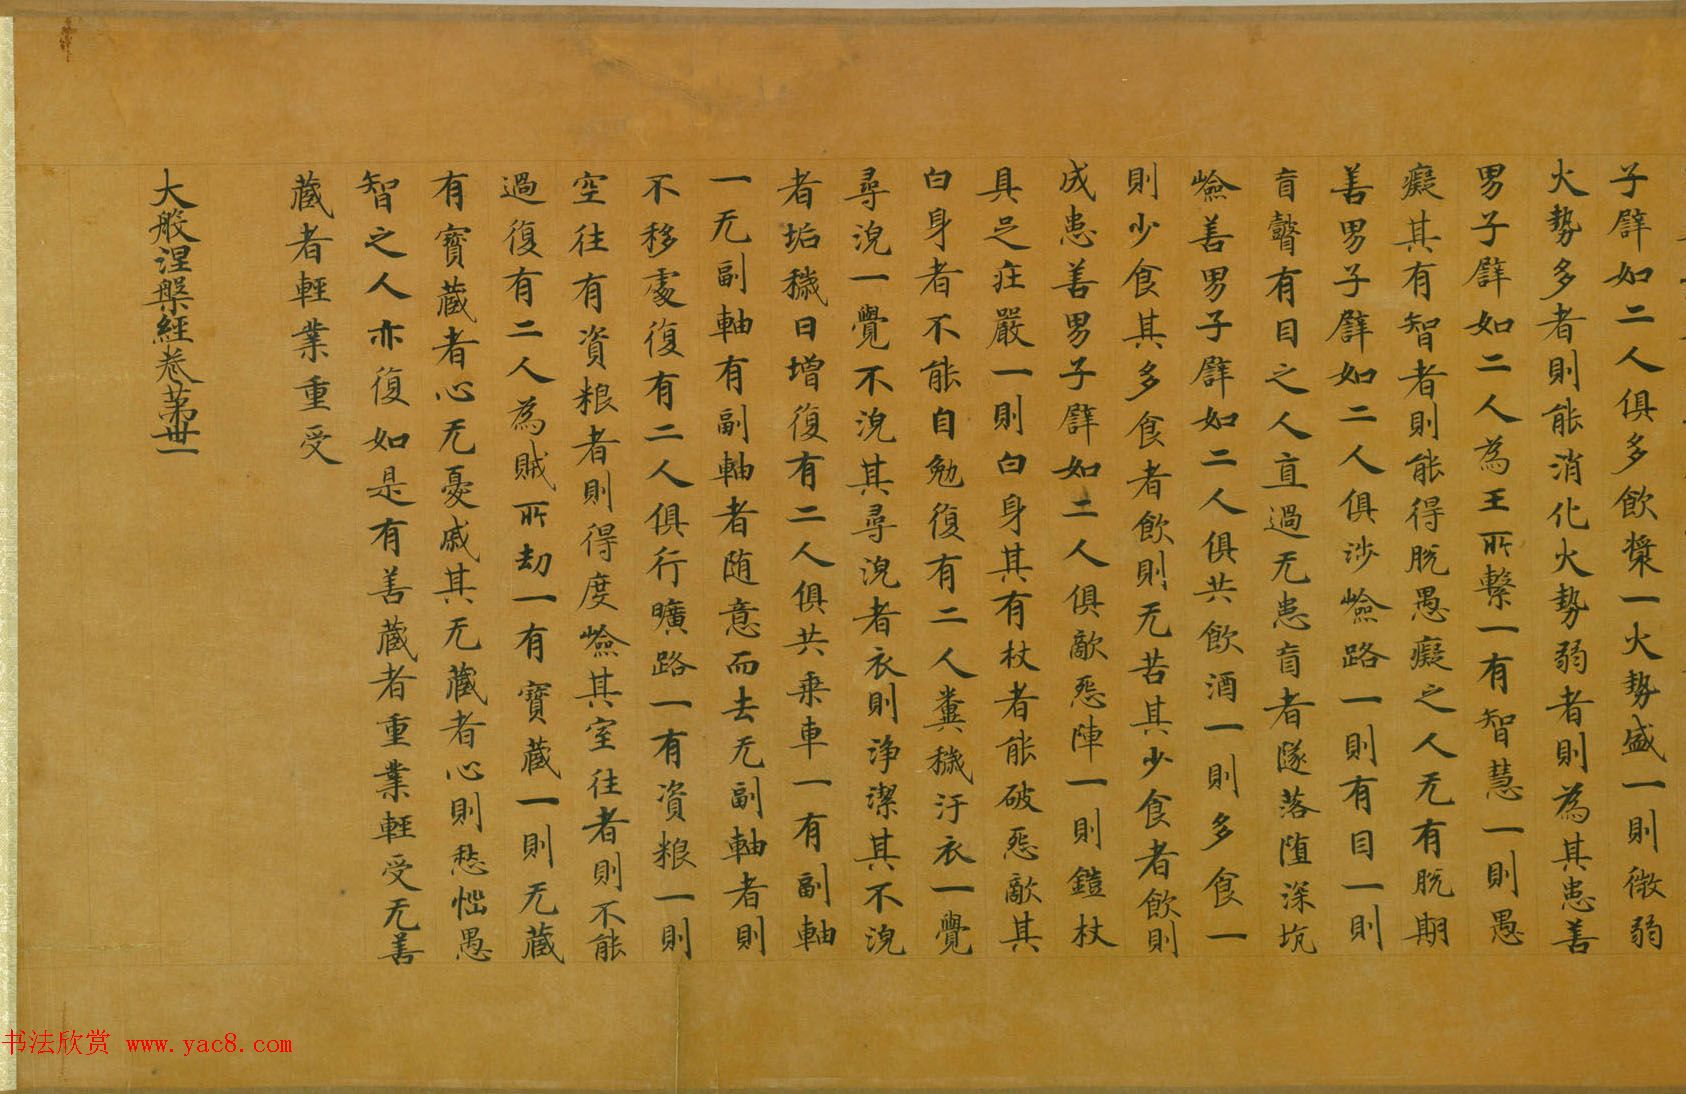 子辟如二人俱多飲漿一火勢盛一則微弱
火勢多者則能消化火勢弱者則為其患善
男子辟如二人為王所繫一有智慧一則愚
癡其有智者則能得脫愚癡之人无有脫期
善男子辟如二人俱涉嶮路一則有目一則
盲瞽有目之人直過无患盲者墜落墮深坑
嶮善男子辟如二人俱共飲酒一則多食一
則少食其多食者飲則无苦其少食者飲則
成患善男子辟如二人俱敵惡陣一則鎧杖
具足疰嚴一則白身其有杖者能破惡敵其
白身者不能自勉復有二人糞穢汙衣一覺
尋浣一覺不浣其尋浣者衣則淨潔其不浣
者垢穢日增復有二人俱共乘車一有副軸
一无副軸有副軸者随意而去无副軸者則
不移處復有二人俱行曠路一有資粮一則
空往有資粮者則得度嶮其空往者則不能
過復有二人為賊所劫一有寶藏一則无藏
有寶藏者心无憂戚其无藏者心則愁惱愚
智之人亦復如是有善藏者重業輕受无善
藏者輕業重受
大般涅槃經卷苐卅一
书法欣赏 www.yac8.com